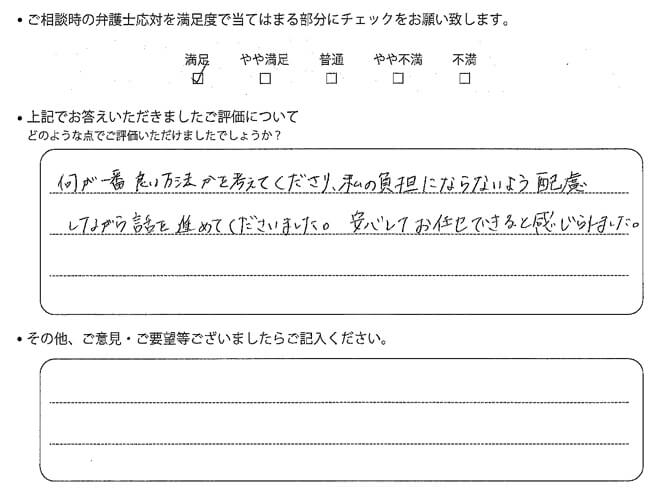 • ご相談時の弁護士応対を満足度で当てはまる部分にチェックをお願い致します。
満足 やや満足 普通 やや不満 不満
☑ ☐ ☐ ☐ ☐
• 上記でお答えいただきましたご評価について
どのような点でご評価いただけましたでしょうか？
何が一番良い方法かを考えてくださり、私の負担にならないよう配慮
しながら話を進めてくださいました。 安心してお任せできると感じられました。
• その他、ご意見・ご要望等ございましたらご記入ください。